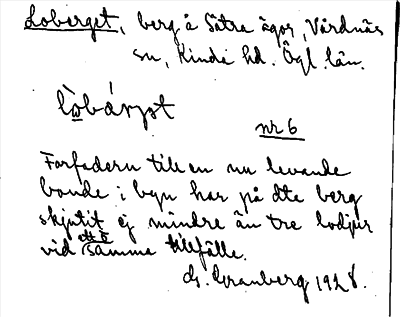 Loberget, berg å Sätra ägor, Vårdnäs
sn, Kinda hd. Ögl. län.
lòbárjet
nr 6
Forfadern till en nu levande
bonde i byn har på dte berg
skjutit ej mindre än tre lodjur
vid ett o samma tillfälle.
G. Granberg 1928.